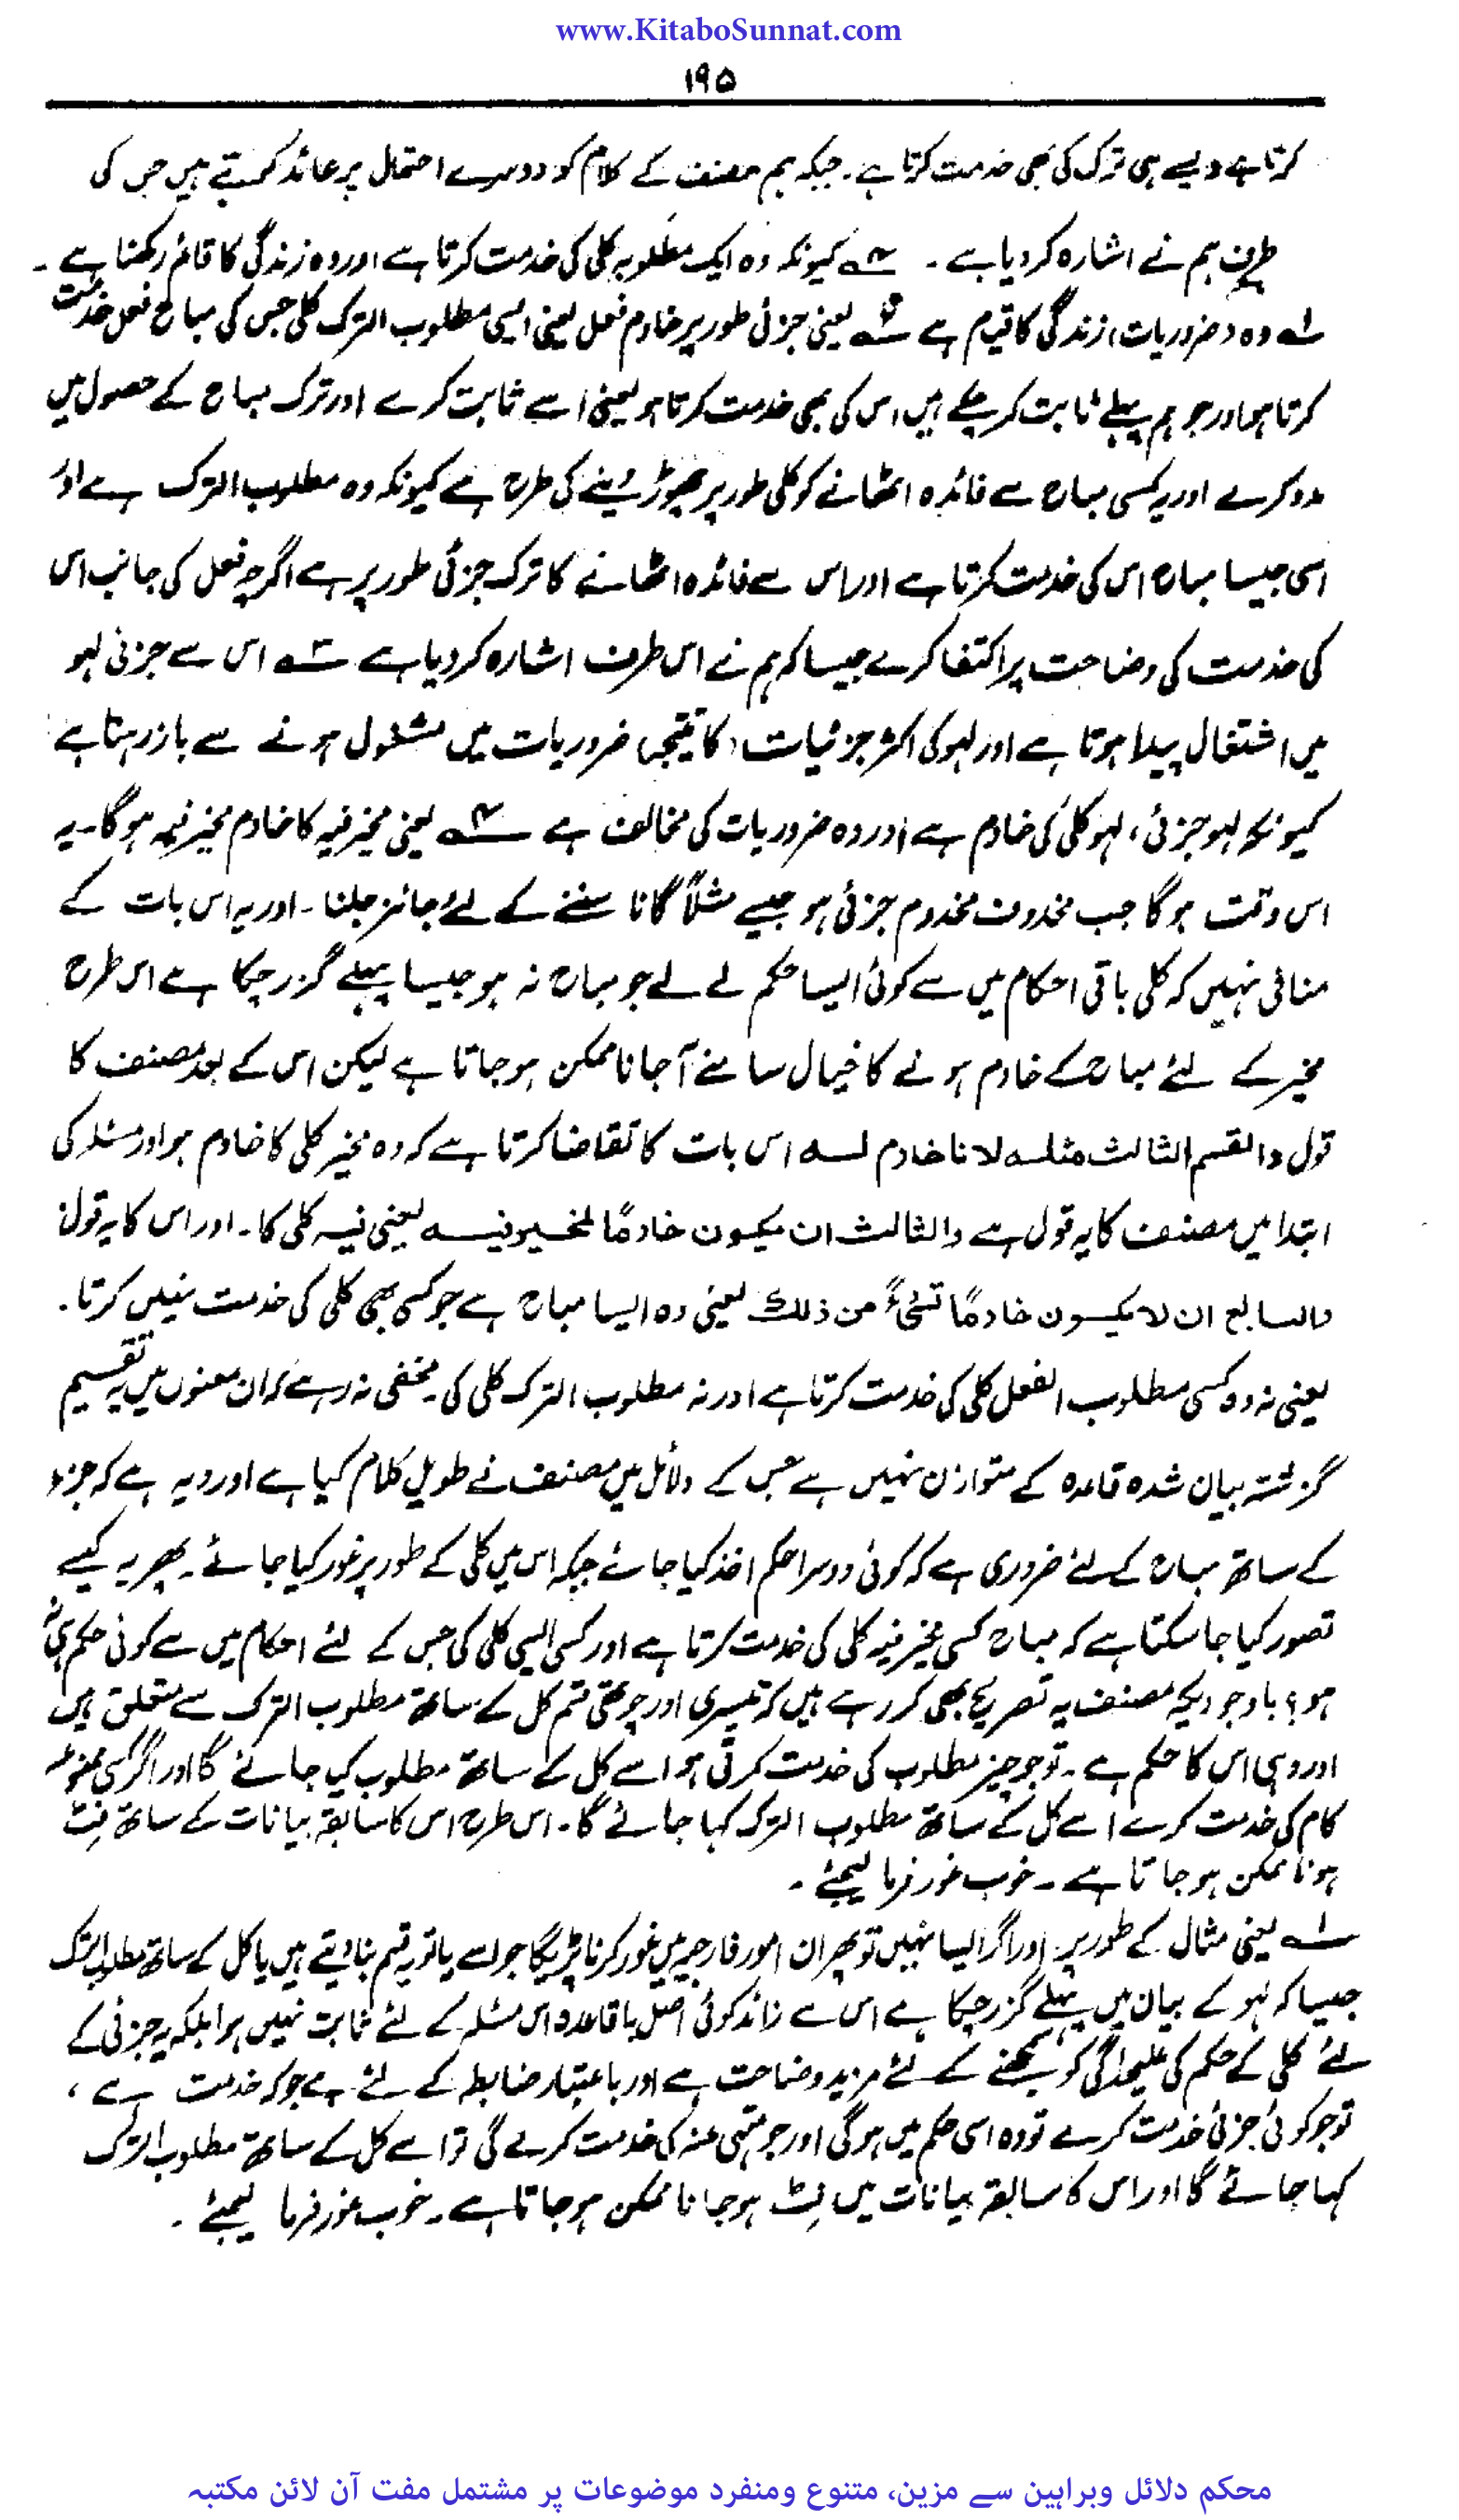 www.KitaboSunnat.com
۱۹۵
کرتا ہے ویسے ہی ترک کی بھی خدمت کرتا ہے۔ جبکہ ہم مصنف کے کلام کو دوسرے احتمال پر عائد کرتے ہیں جس کی
طرف ہم نے اشارہ کر دیا ہے ۔ کیونکہ وہ ایک مطلوبہ کلی کی خدمت کرتا ہے اور وہ زندگی کا قائم رکھنا ہے ۔
لہ وہ ضروریات زندگی کا قیام ہے یعنی جزئی طور پر خادم فعل یعنی ایسی مطلوب الترک کلی جس کی مباح فعل خدمت
کرتا ہو اور جو ہم پہلے ثابت کر چکے ہیں اس کی بھی خدمت کرتا ہو یعنی اسے ثابت کرے اور ترک مباح کے حصول میں
مدد کرے اور یہ کسی مباح سے فائدہ اٹھانے کو کلی طور پر چھوڑ دینے کی طرح ہے کیونکہ وہ مطلوب الترک ہے اور
اسی جیسا مباح اس کی خدمت کرتا ہے اور اس سے فائدہ اٹھانے کا ترک جزئی طور پر ہے اگرچہ فعل کی جانب اس
کی خدمت کی وضاحت پر اکتفا کرے جیسا کہ ہم نے اس طرف اشارہ کر دیا ہے ۳ہ اس سے جزئی لہو
میں اشتغال پیدا ہوتا ہے اور لہو کی اکثر جزئیات کا نتیجہ، ضروریات میں مشغول ہونے سے باز رہنا ہے
کیونکہ لہو جزئی، لہو کلی کی خادم ہے اور وہ ضروریات کی مخالف ہے یعنی مخیر فیہ کا خادم مخیر فیہ ہوگا۔ یہ
اس وقت ہوگا جب محذوف مخدوم جزئی ہو جیسے مثلاً گانا سننے کے لئے جائز چلنا۔ اور یہ اس بات کے
منافی نہیں کہ کلی باقی احکام میں سے کوئی ایسا حکم لے لے جو مباح نہ ہو جیسا پہلے گزر چکا ہے اس طرح
مخیر کے لئے مباح کے خادم ہونے کا خیال سامنے آجانا ممکن ہو جاتا ہے لیکن اس کے بعد مصنف کا
قول والقسم الثالث مثلہ لانا خادم لہ اس بات کا تقاضا کرتا ہے کہ وہ مخیر کلی کا خادم ہو اور مسئلہ کی
ابتدا میں مصنف کا یہ قول ہے والثالث ان یکون خادمًا لمخیر فیہ یعنی فیہ کلی کا۔ اور اس کا یہ قول
والرابع ان لا یکون خادمًا لشئ من ذلک یعنی وہ ایسا مباح ہے جو کسی بھی کلی کی خدمت نہیں کرتا۔
یعنی نہ وہ کسی مطلوب الفعل کلی کی خدمت کرتا ہے اور نہ مطلوب الترک کلی کی۔ مخفی نہ رہے کہ ان معنوں میں یہ تقسیم
گزشتہ بیان شدہ قاعدہ کے متوازن نہیں ہے جس کے دلائل میں مصنف نے طویل کلام کیا ہے اور وہ یہ ہے کہ جزء
کے ساتھ مباح کے لئے ضروری ہے کہ کوئی دوسرا حکم اخذ کیا جائے جبکہ اس میں کلی کے طور پر غور کیا جائے۔ پھر یہ کیسے
تصور کیا جا سکتا ہے کہ مباح کسی مخیر فیہ کلی کی خدمت کرتا ہے اور کسی ایسی کلی کی جس کے لئے احکام میں سے کوئی حکم ہی نہ
ہو؟ باوجودیکہ مصنف یہ تصریح بھی کر رہے ہیں کہ تیسری اور چوتھی قسم کل کے ساتھ مطلوب الترک سے متعلق ہیں
اور وہی اس کا حکم ہے۔ تو جو چیز مطلوب کی خدمت کرتی ہو اسے کل کے ساتھ مطلوب کہا جائے گا اور اگر کسی ممنوعہ
کام کی خدمت کرے اسے کل کے ساتھ مطلوب الترک کہا جائے گا۔ اس طرح اس کا سابقہ بیانات کے ساتھ فِٹ
ہونا ممکن ہو جاتا ہے ۔ خوب غور فرما لیجئے ۔
لہ یعنی مثال کے طور پر اور اگر ایسا نہیں تو پھر ان امور خارجیہ میں غور کرنا پڑیگا جو اسے یا تو یہ قسم بنا دیتے ہیں یا کل کے ساتھ مطلوب الترک
جیسا کہ لہو کے بیان میں پہلے گزر چکا ہے اس سے زائد کوئی اصل یا قاعدہ اس مسئلہ کے لئے ثابت نہیں ہوا بلکہ یہ جزئی کے
لئے کلی کے حکم کی علیحدگی کو سمجھنے کے لئے مزید وضاحت ہے اور باعتبار ضابطہ کے لئے ہے جو کہ خدمت ہے ،
تو جو کوئی جزئی خدمت کرے تو وہ اسی حکم میں ہوگی اور جو منہی عنہ کی خدمت کرے گی تو اسے کل کے ساتھ مطلوب الترک
کہا جائے گا اور اس کا سابقہ بیانات میں فِٹ ہو جانا ممکن ہو جاتا ہے۔ خوب غور فرما لیجئے ۔
محکم دلائل وبراہین سے مزین، متنوع ومنفرد موضوعات پر مشتمل مفت آن لائن مکتبہ